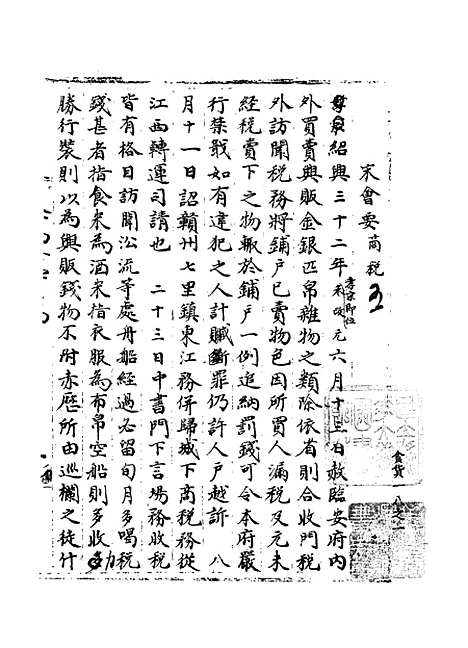 宋會要商稅 五
食貨一八之一
紹興三十二年孝宗即位未改元六月十三日赦臨安府內
外買賣興販金銀匹帛雜物之類除依省則合收門稅
外訪聞稅務將鋪戶已賣物色因所買人漏稅及元未
經稅賣下之物輒於鋪戶一例追納罰錢可令本府嚴
行禁戢如有違犯之人計贓斷罪仍許人戶越訴 八
月十一日詔贛州七里鎮東江務併歸城下商稅務從
江西轉運司請也 二十三日中書門下言場務收稅
皆有格日訪聞沿流等處舟船經過必留旬月多喝稅
錢甚者指食米為酒米指衣服為布帛空船則多收力
勝行裝則以為興販錢物不附赤曆所由巡欄之徒什